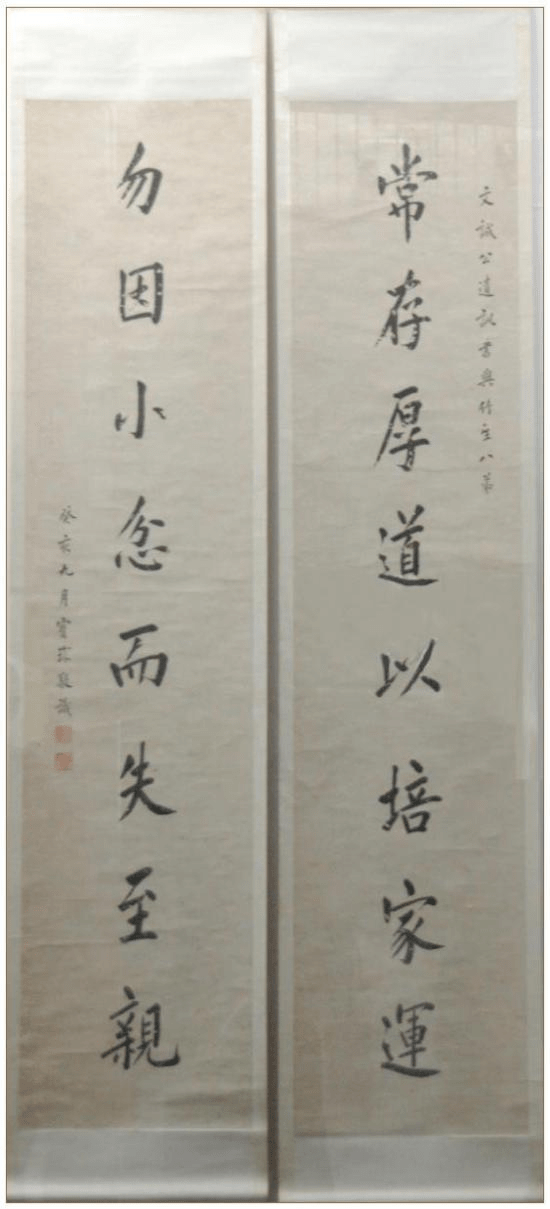 文誠公遺訓書與竹八弟
常存厚道以培家運
勿因小忿而失至親
癸亥九月寶琛識